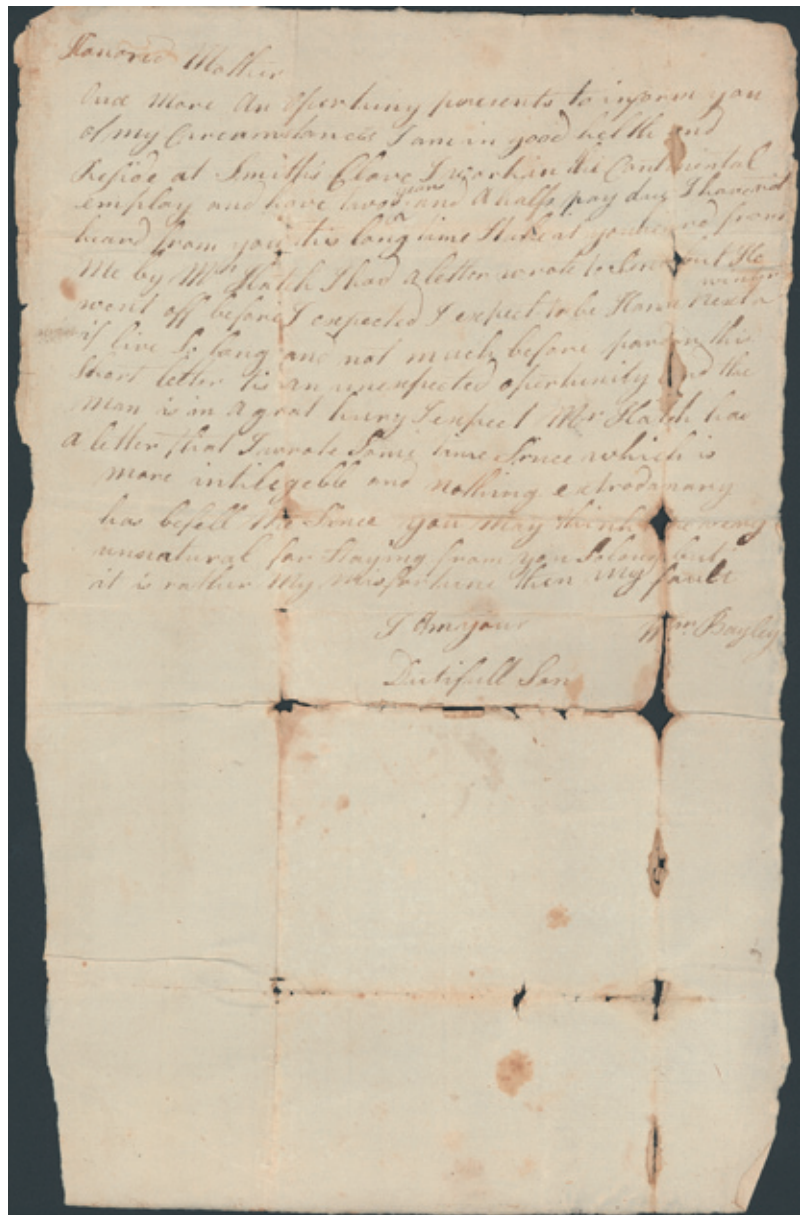 Honored Mother
Onc More An Opertuny presents to inform you
of my Circumstances I am in good helth and
Reside at Smiths Clove I work in the Continental
employ and have two years and A half pay due I have not
heard from you this long time I you heard from
Me by Mr Hatch I had a letter wrote but He
went off before I expected I expect to be Home Next winter
if live So long and not much before pardon this
Short letter tis an unexpected opertunity and the
Man is in A grat hury I expect Mr Hatch has
A letter that I wrote Some time Since which is
more intilegeble and nothing extrodanary
has befell Me Since you may think me very
unnatural for Staying from you So long but
it is rather My Misfortune then My fault
I Am your Wm Bayley
Dutifull Son